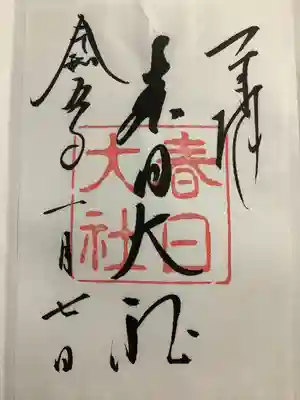 奉拝
春日大社
春日
大社
令和五年
一月七日